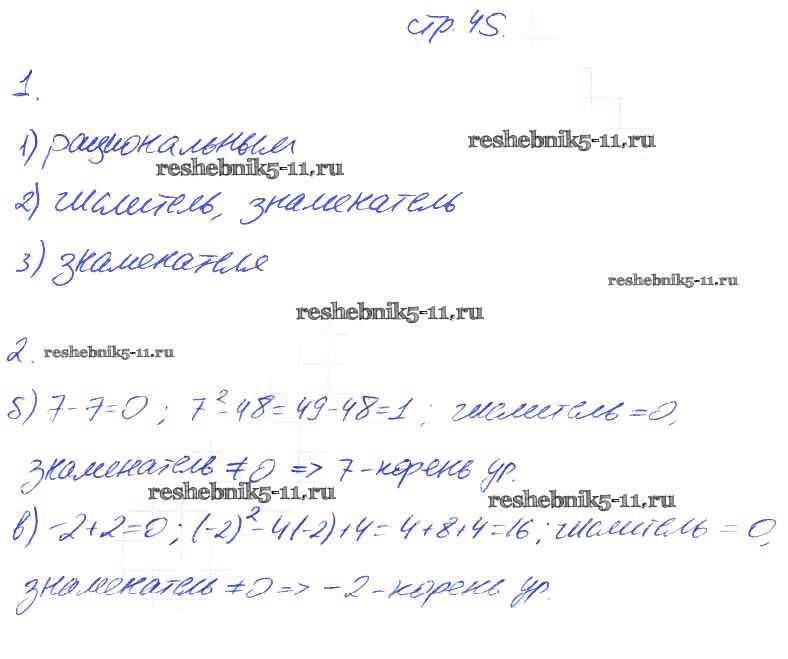 стр. 45.
1.
1) рациональным
reshebnik5-11.ru
reshebnik5-11.ru
2) числитель, знаменатель
3) знаменателя
reshebnik5-11.ru
reshebnik5-11.ru
2. reshebnik5-11.ru
б) 7-7=0; 7²-48=49-48=1; числитель=0,
знаменатель ≠0 => 7-корень ур.
reshebnik5-11.ru
reshebnik5-11.ru
в) -2+2=0; (-2)²-4(-2)+4=4+8+4=16; числитель = 0,
знаменатель ≠0 => -2-корень ур.